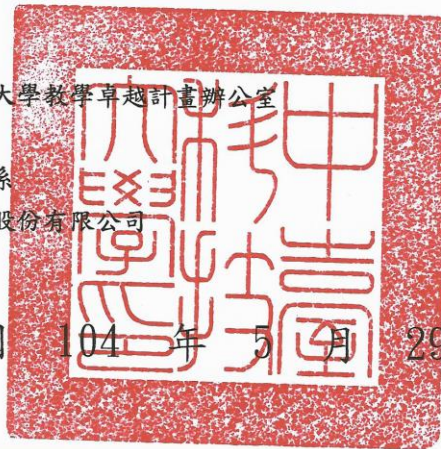 大學教學卓越計畫辦公室
系
股份有限公司
104 年 5 月 29
中臺科技大學印